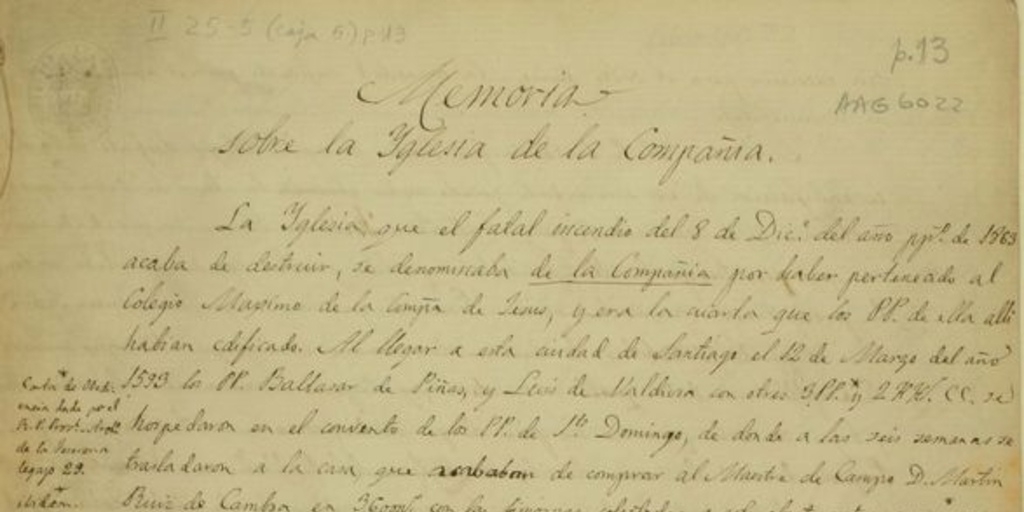 II 25-5 (caja 5) p 13
p. 13
AAG 6022
Memoria
sobre la Yglesia de la Compañia.
La Yglesia que el fatal incendio del 8 de Dic.e del año pp.o de 1863
acaba de destruir, se denominaba de la Compañia por haber pertenecido al
Colegio Maximo de la Compa de Jesus, y era la cuarta que los PP. de ella alli
habian edificado. Al llegar a esta ciudad de Santiago el 12 de Marzo del año
1593 los PP. Baltasar de Piñas, y Luis de Valdivia con otros 3 PP. y 2 HH. CC. se
hospedaron en el convento de los PP. de Sto Domingo, de donde a las seis semanas se
trasladaron a la casa, que acababan de comprar al Maestre de Campo D. Martin
Ruiz de Gamboa en 3600 con las limosnas
Carta de
dada por el
de la
legajo 29.